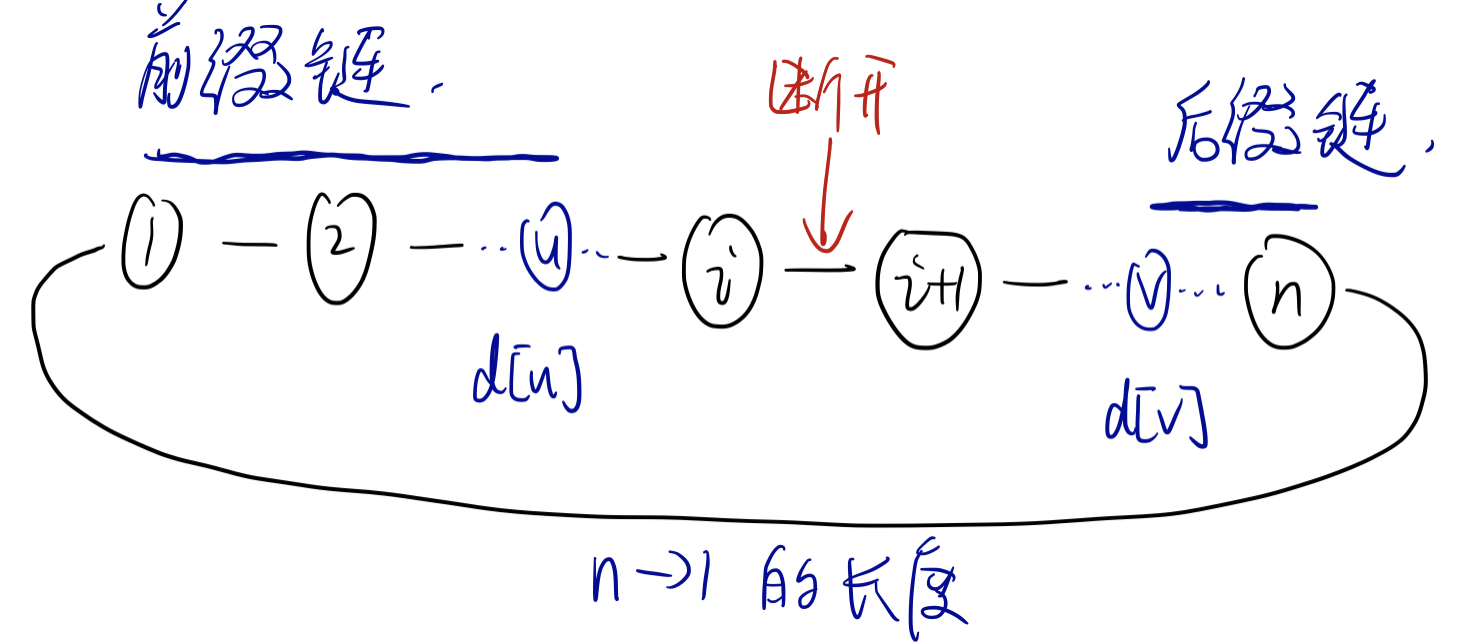 前缀链.
断开
后缀链.
1 — 2 — ··· u ··· — i — i+1 — ··· v ··· n
d[u]
d[v]
n→1 的长度